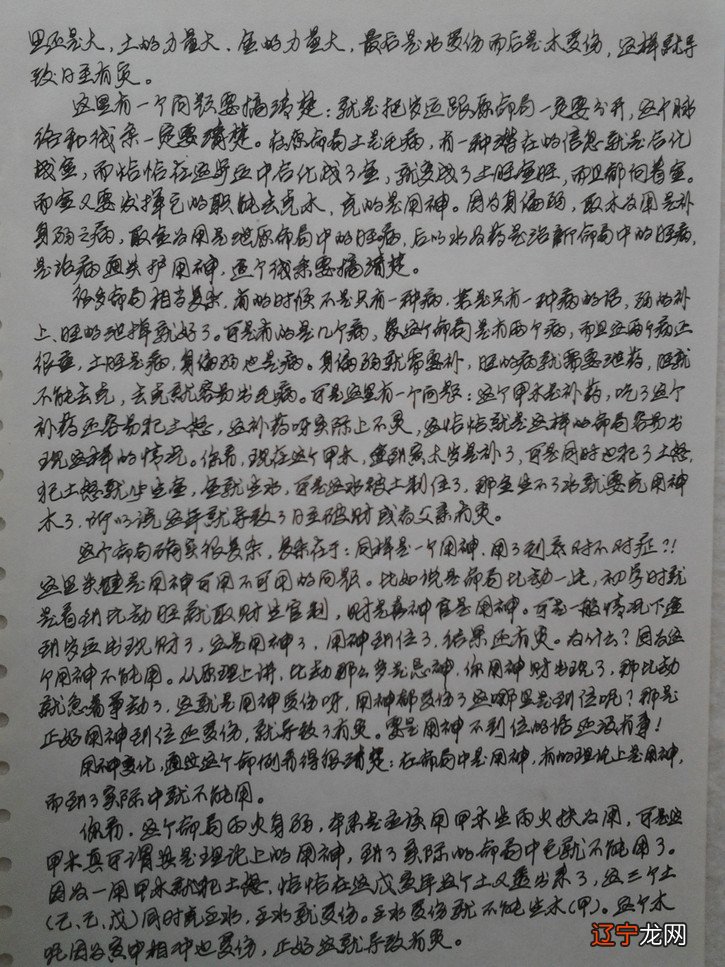 里还是大，土的力量大、金的力量大，最后是水受伤而后是木受伤，这样就导
致日主有灾。
这里有一个问题要搞清楚：就是把岁运跟原命局一定要分开，这个脉
络和线索一定要清楚。在原命局土是毛病，有一种潜在的信息就是合化
成金，而恰恰在这步运中合化成了金，就变成了土旺金旺，而且都向着金。
而金又要发挥它的职能去克木，克的是用神。因为身偏弱，取木为用是补
身弱之病，取金为用是泄原命局中的旺病，后以水为药是治新命局中的旺病，
是治病通关护用神，这个线索要搞清楚。
很多命局相当复杂，有的时候不是只有一种病，若是只有一种病的话，弱的补
上、旺的泄掉就好了。可是有的是几个病，象这个命局是有两个病，而且这两个病还
很重，土旺是病，身偏弱也是病。身偏弱就需要补，旺的病就需要泄药，旺就
不能去克，去克就容易出毛病。可是这里有一个问题：这个甲木是补药，吃了这个
补药还容易犯土怒，这补药呀实际上不灵，这恰恰就是这样的命局容易出
现这样的情况。你看，现在这个甲木，逢到寅太岁是补了，可是同时也犯了土怒，
犯土怒就生金，金就生水，可是这水被土制住了，那金生不了水就要克用神
木了，所以说这年就导致了日主破财或者父亲有灾。
这个命局确实很复杂，复杂在于：同样是一个用神，用了到底对不对症?!
这里关键是用神可用不可用的问题。比如说是命局比劫一片，初学时就
是看到比劫旺就取财生官制，财是喜神官是用神。可是一般情况下逢
到岁运出现财了，这是用神了，用神到位了，结果还有灾。为什么？因为这
个用神不能用。从原理上讲，比劫那么多是忌神，你用神财出现了，那比劫
就急着争劫了，这就是用神受伤呀，用神都受伤了这哪里是到位呢？那是
正好用神到位还受伤，就导致了有灾。要是用神不到位的话还没有事！
用神变化，通过这个命例看得很清楚：在命局中是用神，有的理论上是用神，
而到了实际中就不能用。
你看，这个命局丙火身弱，本来是应该用甲木生丙火扶为用，可是这
甲木真可谓其是理论上的用神，到了实际的命局中它就不能用了。
因为一用甲木就犯土怒，恰恰在这戊寅年这个土又透出来了，这三个土
(己、己、戊)同时克壬水，壬水就受伤。壬水受伤就不能生木(甲)。这个木
呢因为寅申相冲也受伤，正好这就导致有灾。
辽宁龙网